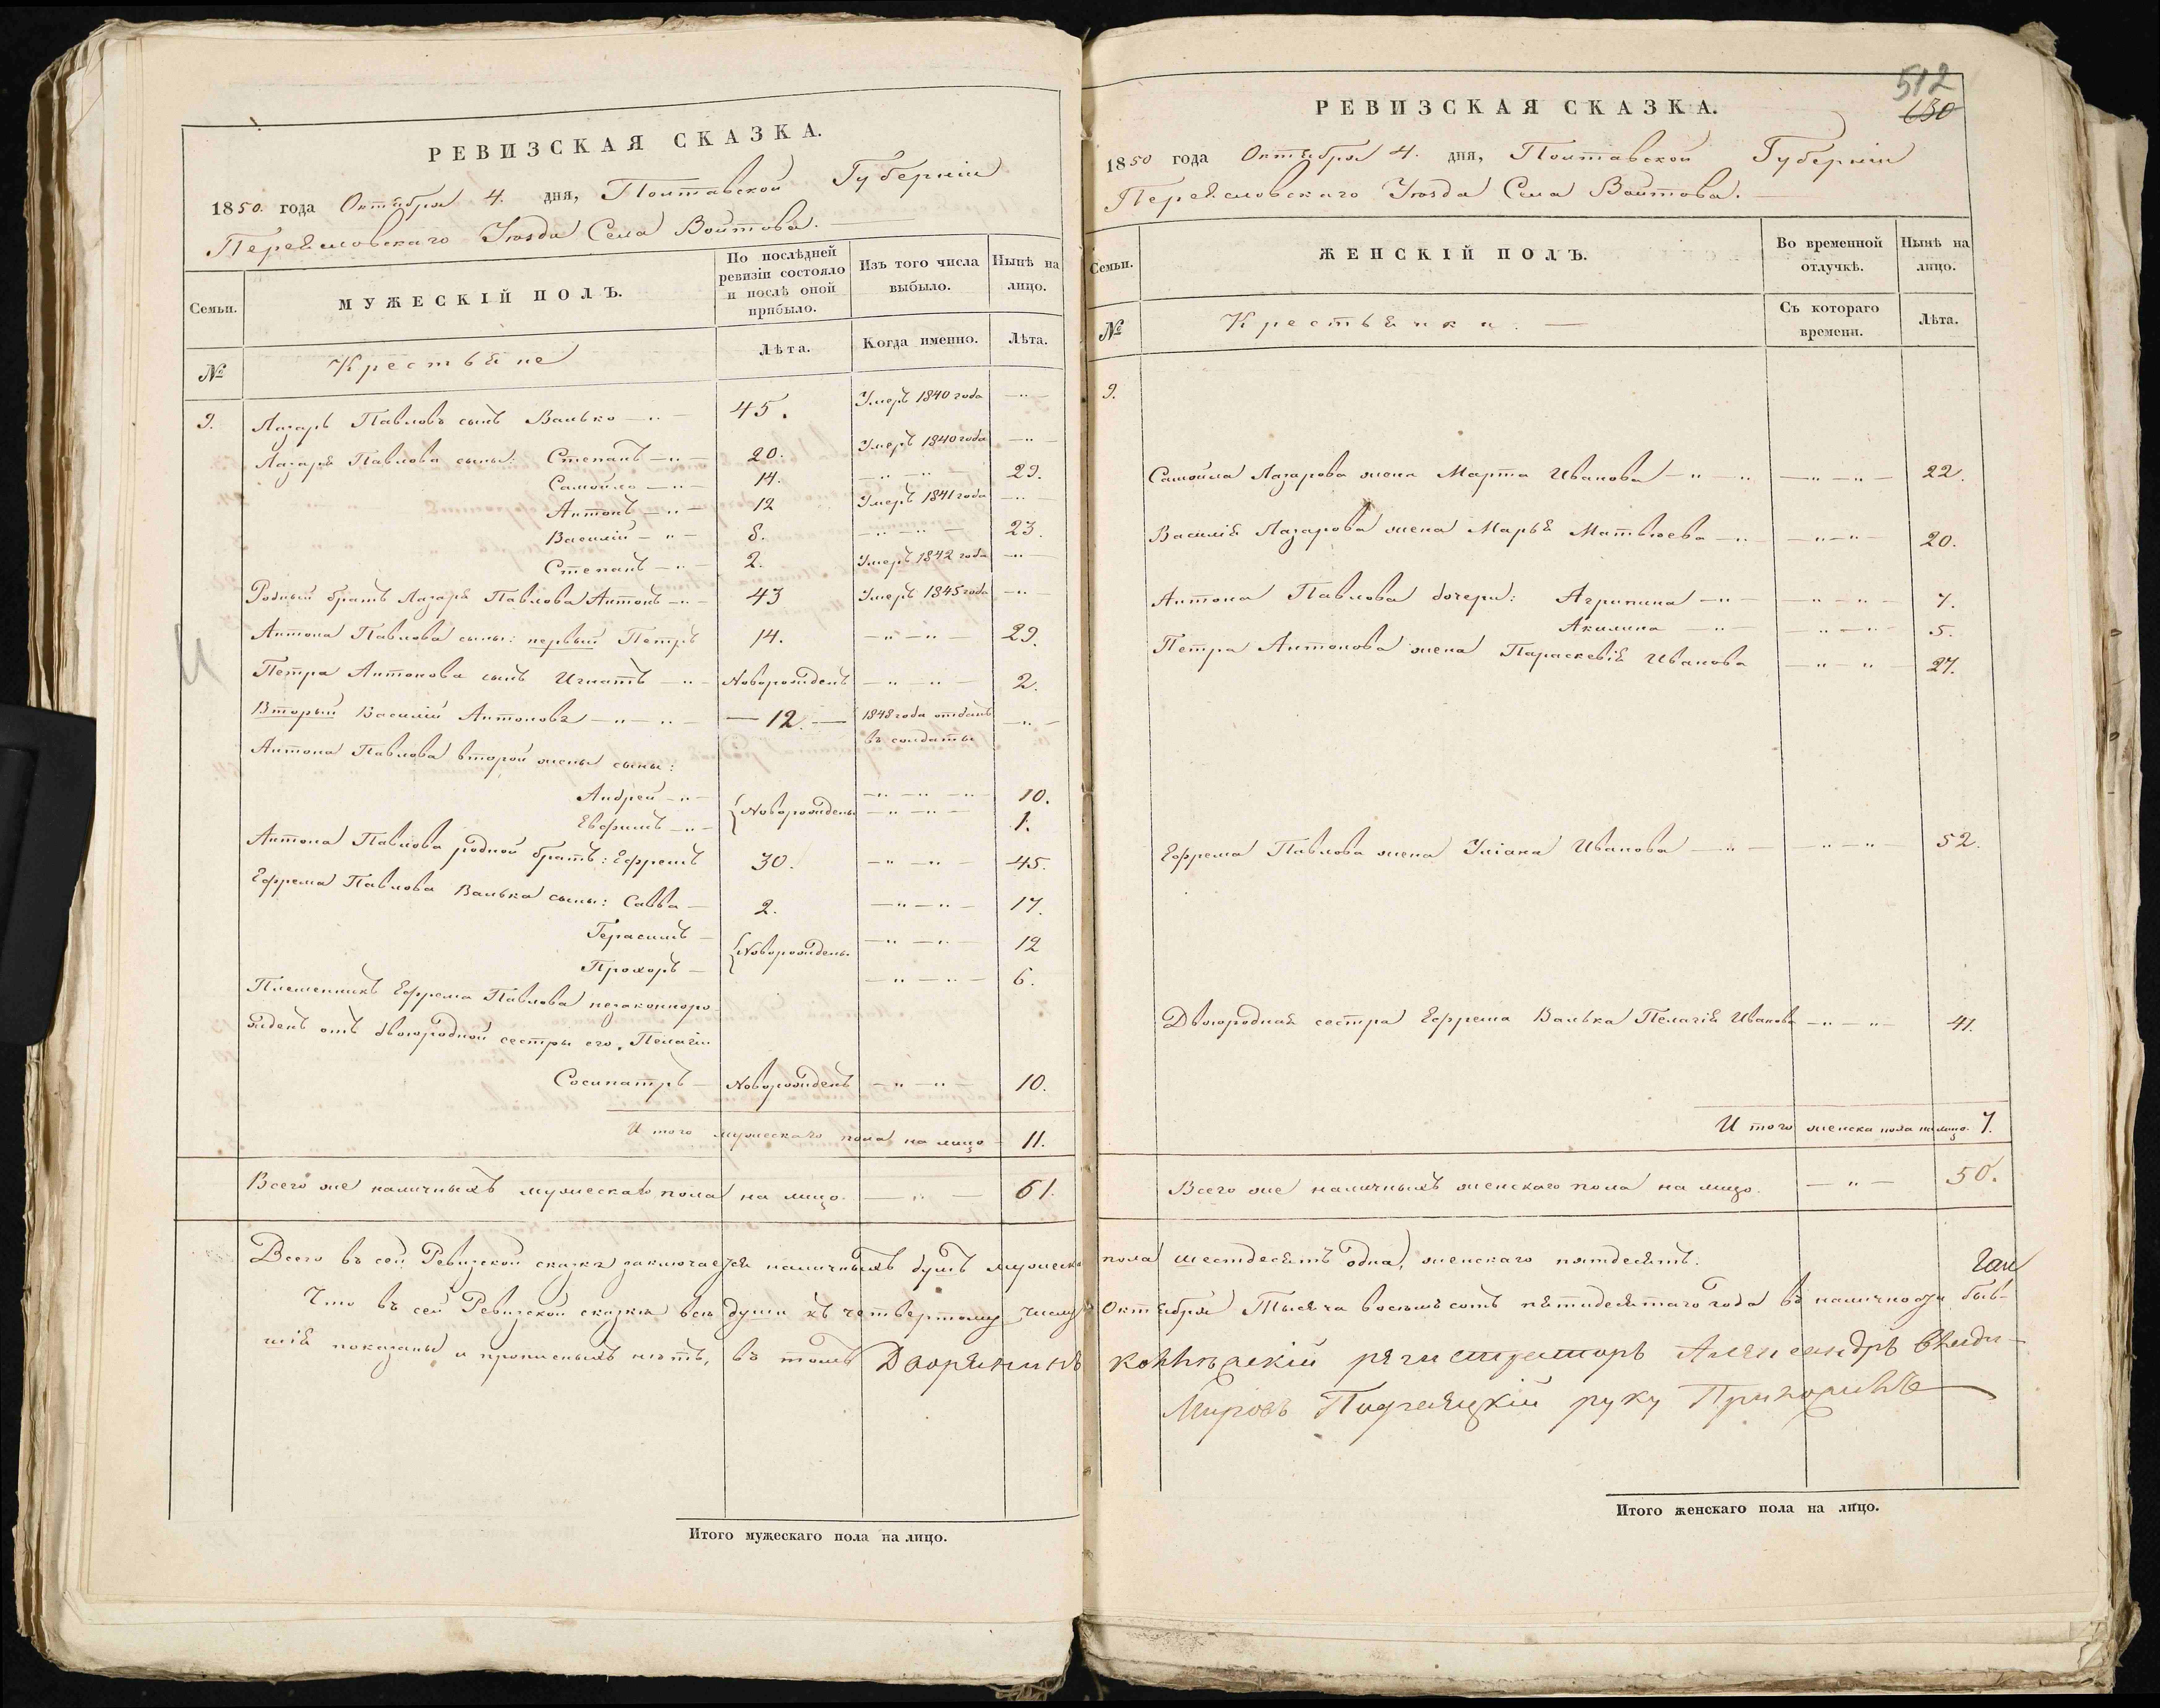 РЕВИЗСКАЯ СКАЗКА.
1850. года Октября 4. дня, Полтавской Губерніи
Переясловскаго Уезда Села Войтова.
Семьи.
МУЖЕСКІЙ ПОЛЪ.
По послѣдней ревизіи состояло и послѣ оной прибыло.
Изъ того числа выбыло.
Нынѣ на лицо.
№
Крестьяне
Лѣта.
Когда именно.
Лѣта.
9. Лазарь Павловъ сынъ Валько — 45. Умеръ 1840 года —"—
Лазаря Павлова сыны: Степанъ —"— 20. Умеръ 1840 года —"—
Самойло —"— 14. —"— 29.
Антонъ —"— 12 Умеръ 1841 года —"—
Василій —"— 8. —"—"— 23.
Степанъ —"— 2. Умеръ 1842 года —"—
Родный братъ Лазаря Павлова Антонъ —"— 43 Умеръ 1845 года —"—
Антона Павлова сыны: первый Петръ 14. —"—"— 29.
Петра Антонова сынъ Игнатъ —"— Новорожденъ —"—"— 2.
Вторый Василій Антоновъ —"—"— —12.— 1848 года отданъ —"—
въ солдаты
Антона Павлова второй жены сыны:
Андрей —"— { Новорожденъ —"—"—"— 10.
Евфимъ —"— —"—"— 1.
Антона Павлова родной братъ: Ефремъ 30. —"—"— 45.
Ефрема Павлова Валька сыны: Савва — 2. —"—"— 17.
Герасимъ — { Новорожденъ. —"—"— 12
Прохоръ — —"—"— 6.
Племенникъ Ефрема Павлова незаконноро-
жденъ отъ двоюродной сестры его, Пелагіи
Сосипатръ — Новорожденъ —"—"— 10.
Итого мужескаго пола на лицо — 11.
Всего же наличныхъ мужескаго пола на лицо. —"— 61.
Итого мужескаго пола на лицо.
512
130
РЕВИЗСКАЯ СКАЗКА.
1850 года Октября 4. дня, Полтавской Губерніи
Переясловскаго Уезда Села Войтова.
Семьи.
ЖЕНСКІЙ ПОЛЪ.
Во временной отлучкѣ.
Нынѣ на лицо.
№
Крестьянки.
Съ котораго времени.
Лѣта.
9.
Самойла Лазарова жена Марта Иванова —"—"— —"—"— 22.
Василія Лазарова жена Марья Матвѣева —"— —"—"— 20.
Антона Павлова дочери: Агрипина —"— —"—"— 7.
Акилина —"— —"—"— 5.
Петра Антонова жена Параскевія Иванова —"—"— 27.
Ефрема Павлова жена Уліана Иванова —"— —"—"— 52.
Двоюродная сестра Ефрема Валька Пелагія Иванова —"—"— 41.
Итого женска пола на лицо. 7.
Всего же наличныхъ женскаго пола на лицо. —"— 50.
Всего въ сей Ревизской сказкѣ заключается наличныхъ душъ мужеска пола шестдесятъ одна, женскаго пятдесятъ.
Что въ сей Ревизской сказкѣ всѣ души къ четвертому числу Октября Тысяча восемь сотъ пятидесятаго года въ наличности быв-
шія показаны и прописныхъ нѣтъ, въ томъ Дворянинъ коллежскій регистраторъ Александръ
руку Приложилъ
Итого женскаго пола на лицо.